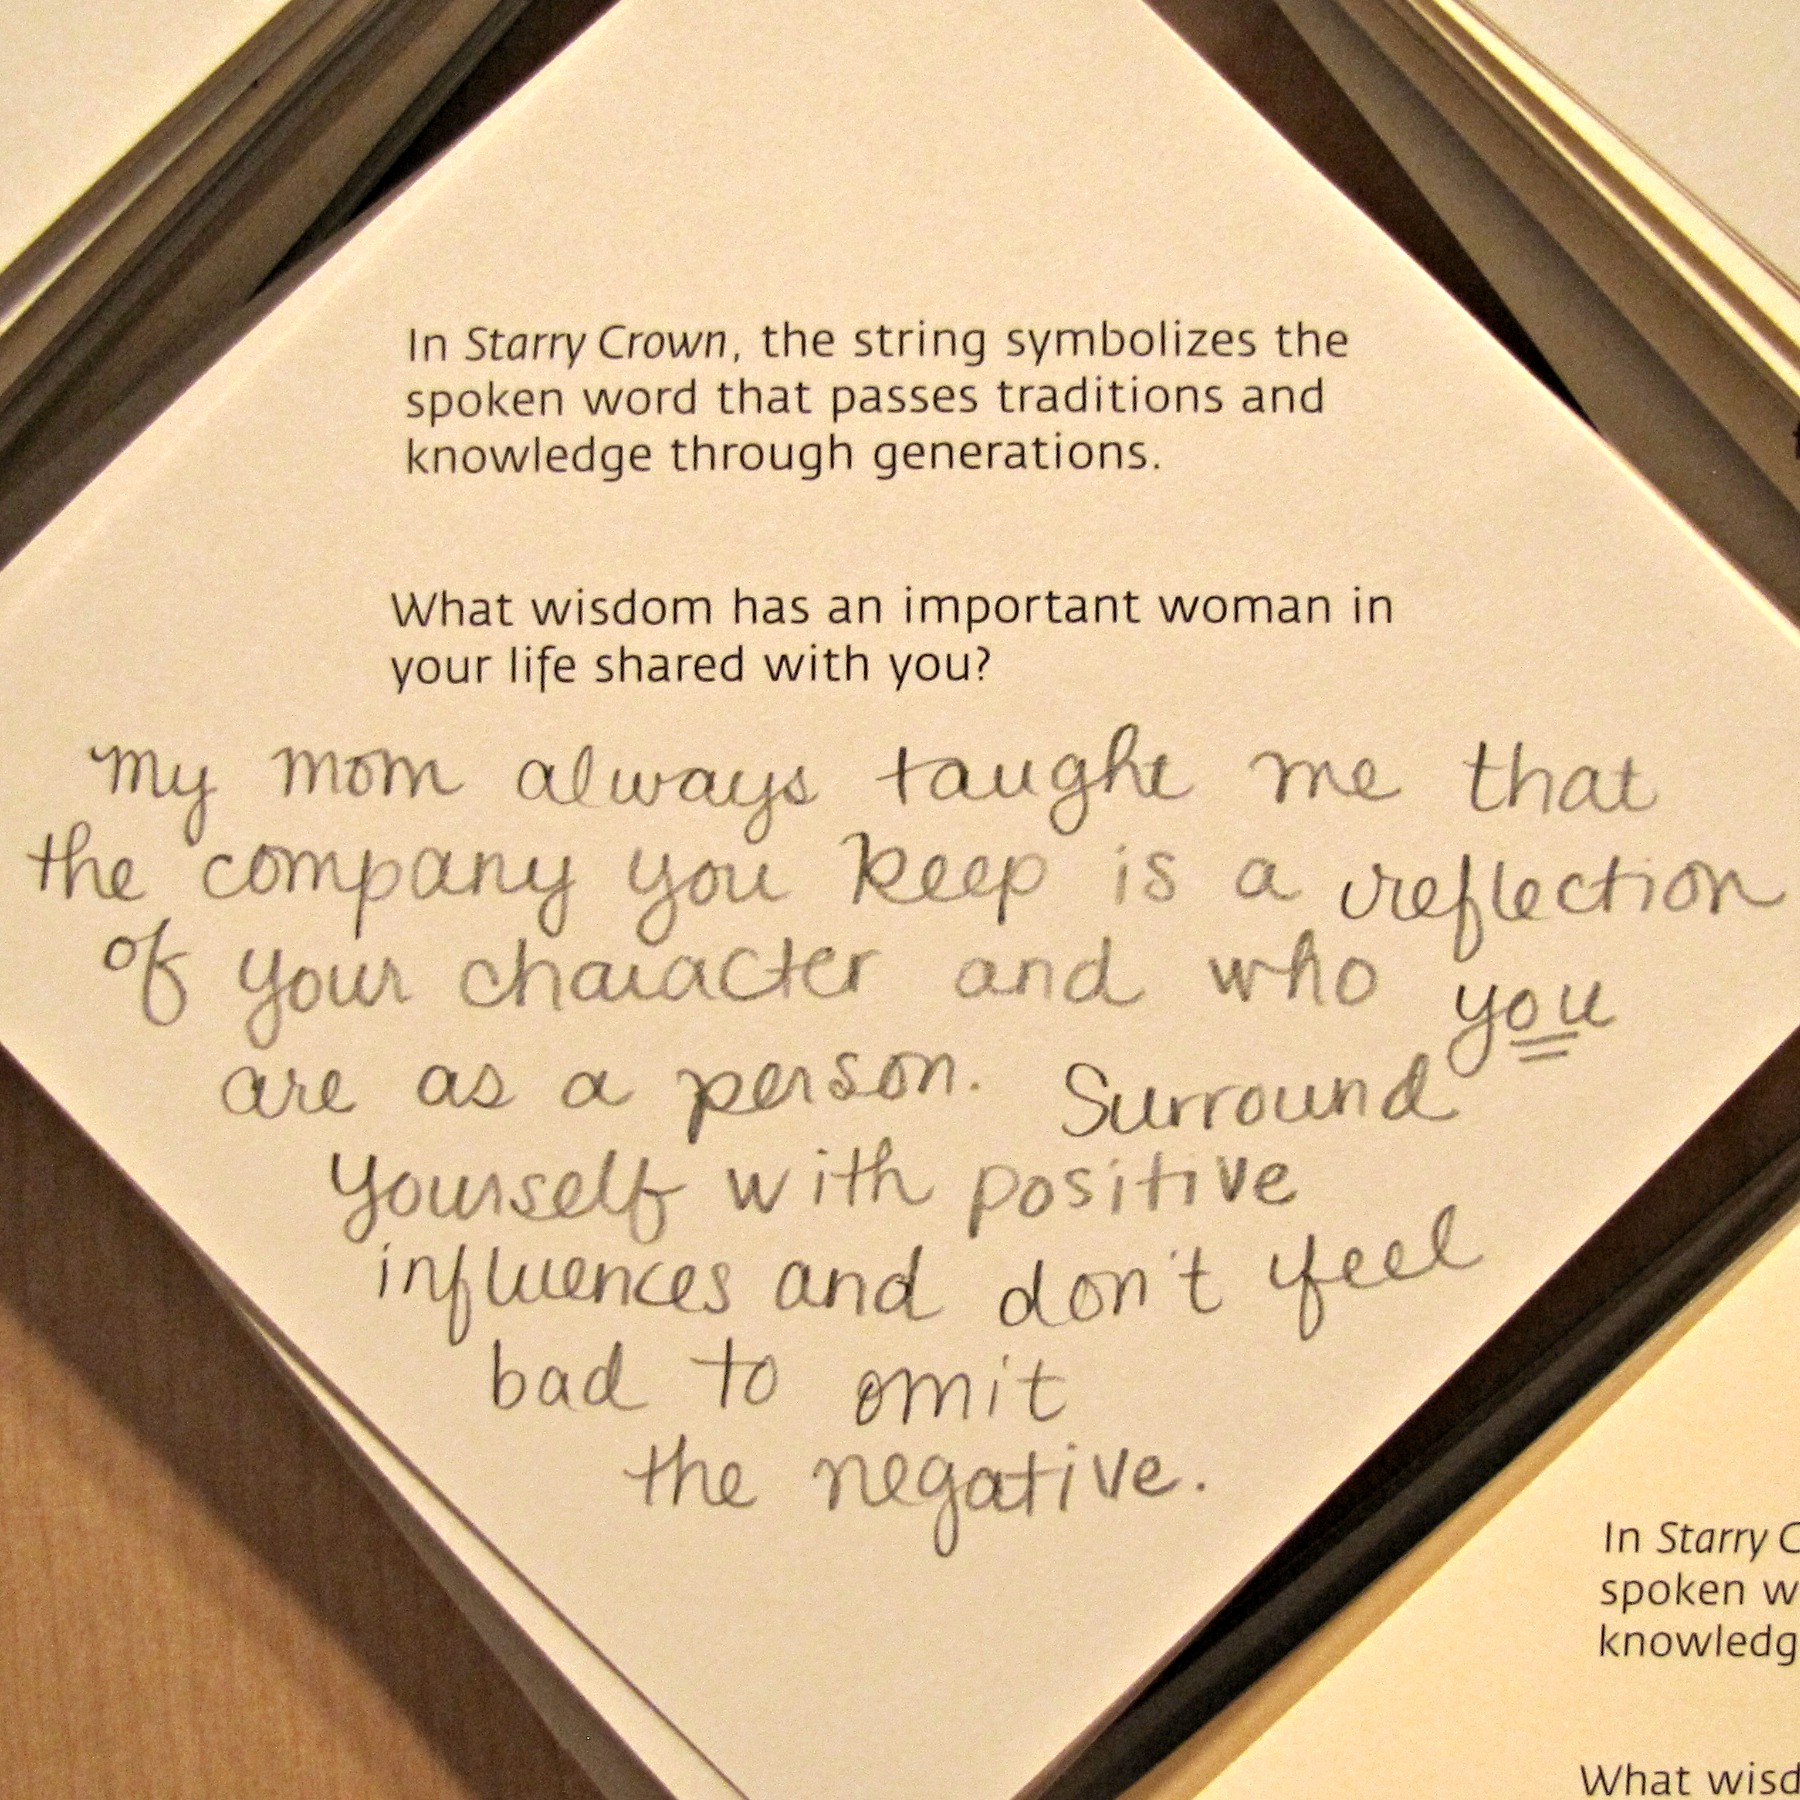 In Starry Crown, the string symbolizes the
spoken word that passes traditions and
knowledge through generations.
What wisdom has an important woman in
your life shared with you?
My mom always taught me that
the company you keep is a reflection
of your character and who you
are as a person. Surround
yourself with positive
influences and don't feel
bad to omit
the negative.
In Starry C
spoken w
knowledg
What wisd